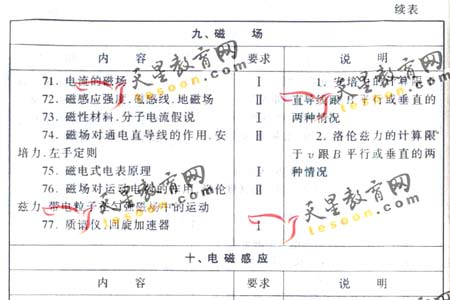 续表
九、磁 场
内 容 要求 说 明
71. 电流的磁场 Ⅰ
72. 磁感应强度.磁感线.地磁场 Ⅱ
73. 磁性材料.分子电流假说 Ⅰ
74. 磁场对通电直导线的作用.安
培力.左手定则 Ⅱ
75. 磁电式电表原理 Ⅰ
76. 磁场对运动电荷的作用.洛伦
兹力.带电粒子在匀强磁场中的运动 Ⅱ
77. 质谱仪,回旋加速器 Ⅰ
1. 安培力的计算限
直导线跟B平行或垂直的
两种情况
2. 洛伦兹力的计算限
于v跟B平行或垂直的两
种情况
十、电 磁 感 应
内 容 要求 说 明
天星教育网
tesoon.com
天星教育网
tesoon.com
天星教育网
tesoon.com
天星教育网
tesoon.com